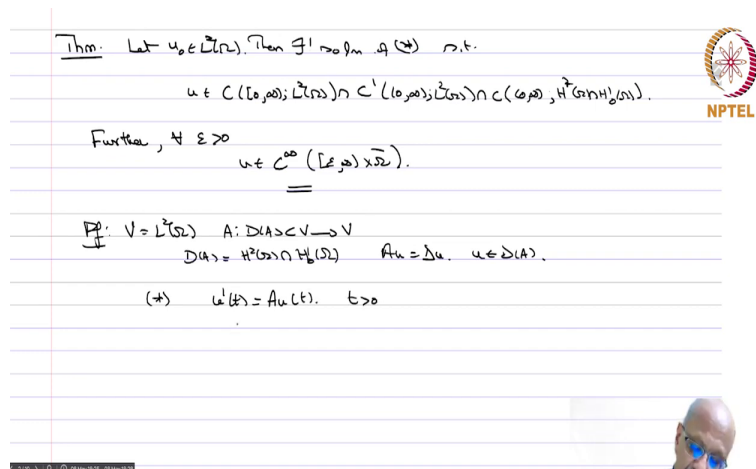 Thm. Let u₀ ∈ L²(Ω). Then ∃! soln of (*) s.t.
u ∈ C([0,∞); L²(Ω)) ∩ C¹((0,∞); L²(Ω)) ∩ C((0,∞), H²(Ω)∩H₀¹(Ω)).
Further, ∀ ε>0
u ∈ C^∞ ([ε,∞) × Ω̄).
Pf: V = L²(Ω) A: D(A) ⊂ V → V
D(A) = H²(Ω) ∩ H₀¹(Ω) Au = Δu. u ∈ D(A).
(*) u'(t) = Au(t). t>0
NPTEL